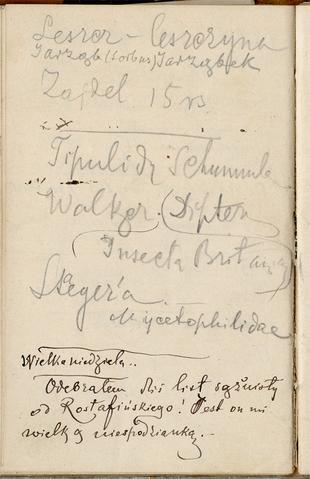 Leszcz - Leszczyna
Jarząb (Sorbus) Jarząbek
Zajdel 15 rs
Tipulidy Schummla
Walker. (Diptera
Insecta Britannica)
Stegera
Mycetophilidae
Wielka niedziela..
Odebrałem dziś list sążnisty
od Rostafińskiego! Jest on mi
wielką niespodzianką.-